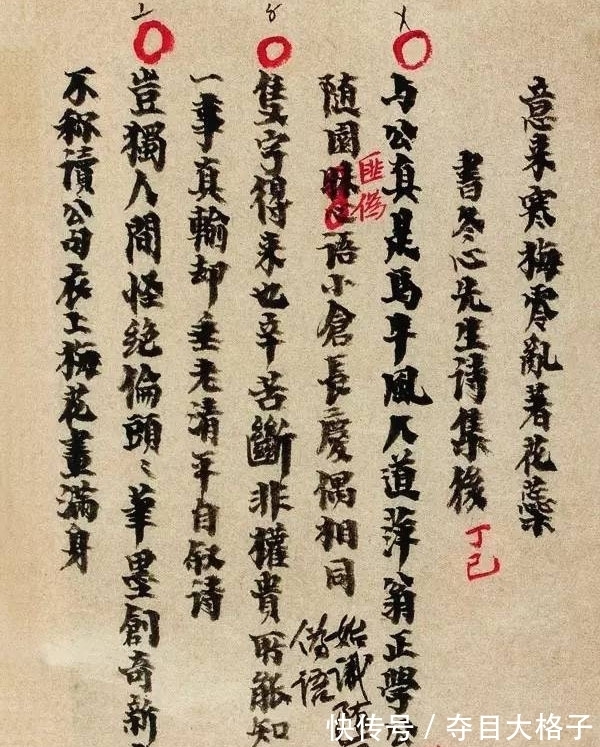 意来寒梅零亂著花
書冬心先生詩集後 丁巳
与公真是馬牛風人道萍翁正學
随園心語小倉長慶偶相同
匪偽
始識
偽語
隻字得来也辛苦斷非權貴所能知
一事真輸却垂老清平自叙詩
豈獨人間怪絶倫頭〻筆墨創奇新
不称讀公句衣上梅花畫滿身
快传号 / 夺目大格子